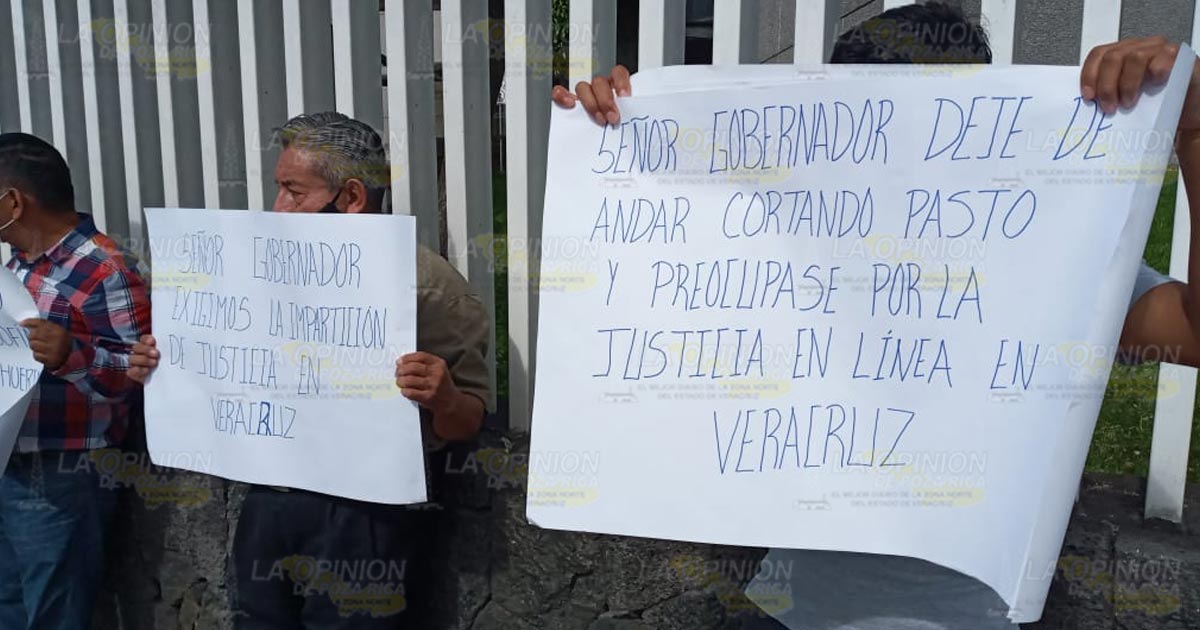 SEÑOR GOBERNADOR
EXIGIMOS LA IMPARTICIÓN
DE JUSTICIA EN
VERACRUZ
SEÑOR GOBERNADOR DEJE DE
ANDAR CORTANDO PASTO
Y PREOCUPASE POR LA
JUSTICIA EN LÍNEA EN
VERACRUZ
LA OPINION
DE POZA RICA
EL MEJOR DIARIO DE LA ZONA NORTE
DEL ESTADO DE VERACRUZ